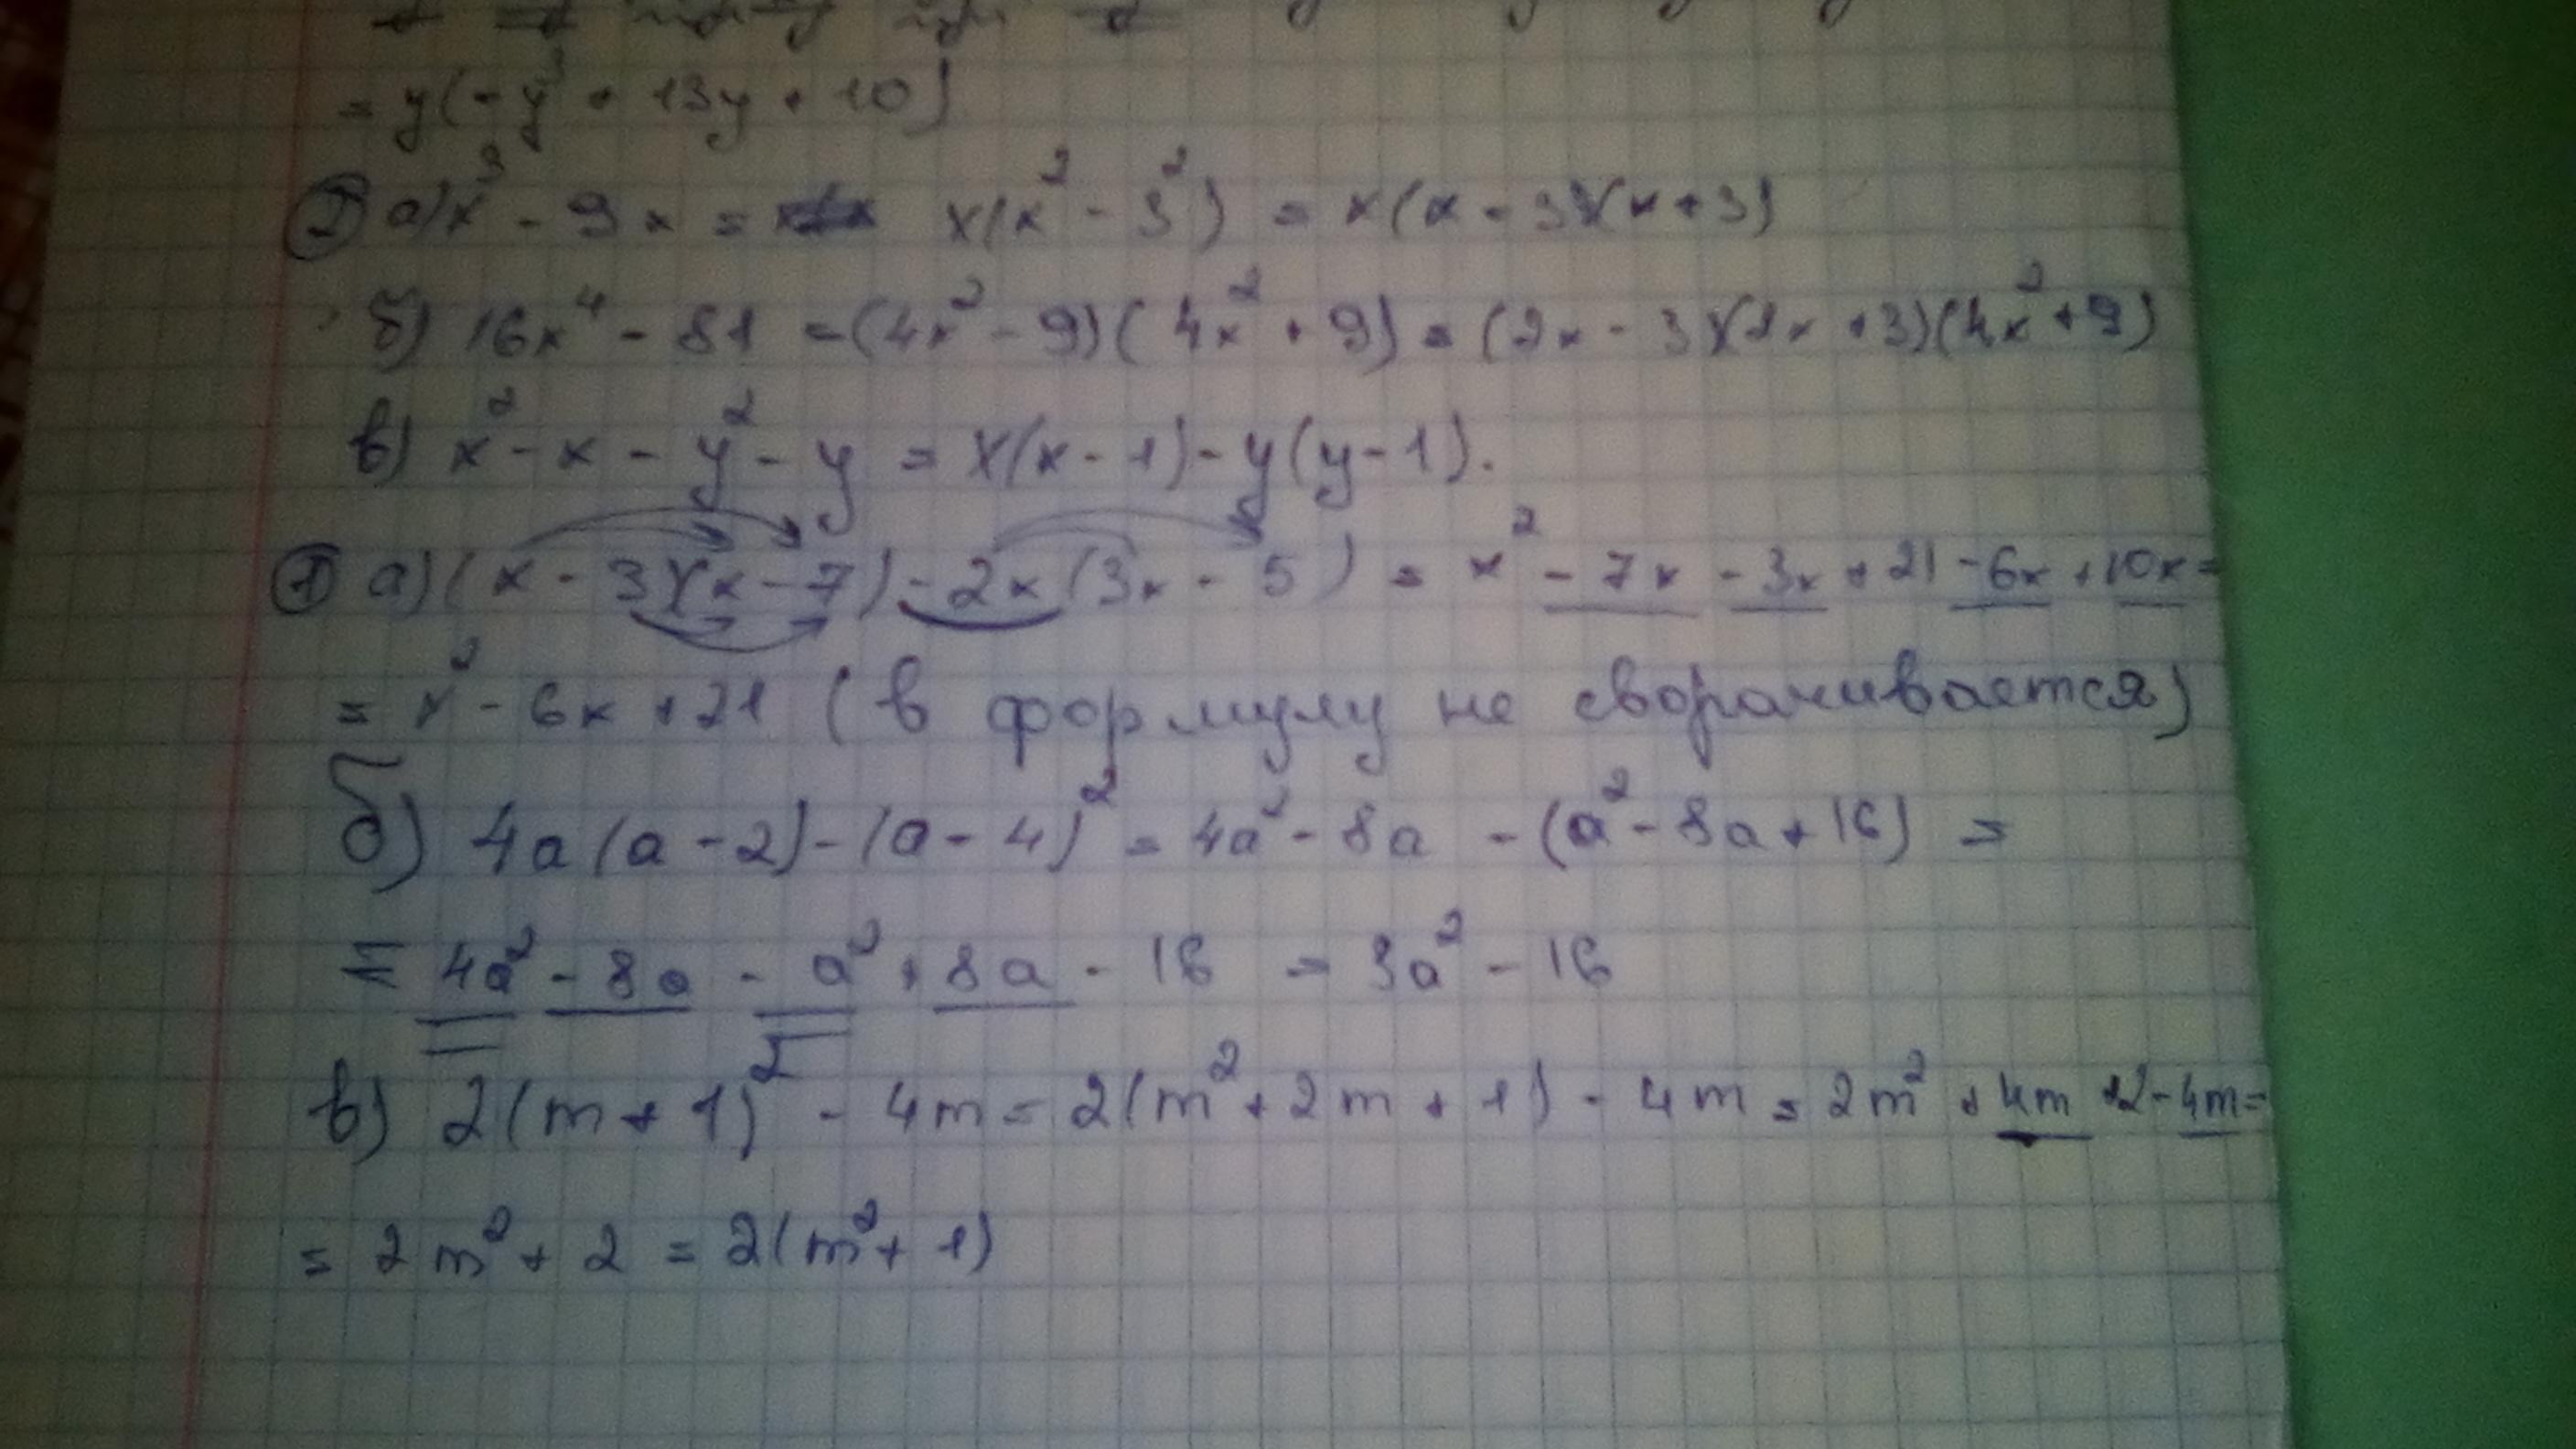 = y(-y³ + 13y + 10)
② а) x³ - 9x = x(x² - 3²) = x(x - 3)(x + 3)
б) 16x⁴ - 81 = (4x² - 9)(4x² + 9) = (2x - 3)(2x + 3)(4x² + 9)
в) x² - x - y² - y = x(x - 1) - y(y - 1).
① а) (x - 3)(x - 7) - 2x(3x - 5) = x² - 7x - 3x + 21 - 6x + 10x =
= x² - 6x + 21 (в формулу не сворачивается)
б) 4a(a - 2) - (a - 4)² = 4a² - 8a - (a² - 8a + 16) =
= 4a² - 8a - a² + 8a - 16 = 3a² - 16
в) 2(m + 1)² - 4m = 2(m² + 2m + 1) - 4m = 2m² + 4m + 2 - 4m =
= 2m² + 2 = 2(m² + 1)